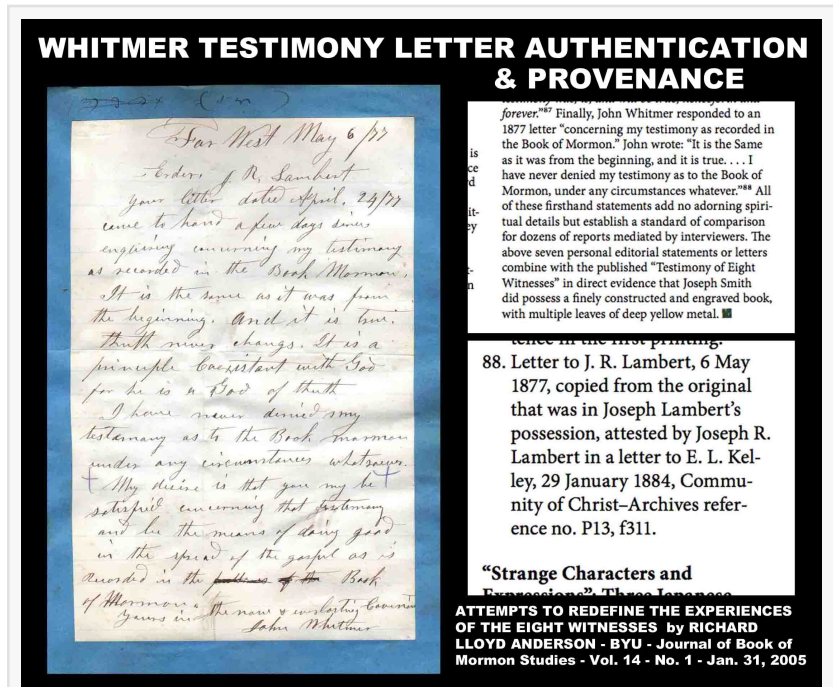 WHITMER TESTIMONY LETTER AUTHENTICATION
& PROVENANCE
Far West May 6/77
Elders J. R. Lambert
Your letter dated April, 24/77
came to hand a few days sines
enquiring concerning my testimony
as recorded in the Book Mormon.
It is the same as it was from
the beginning. And it is true.
thuth never changes. It is a
principle Coexistant with God
for he is a God of thuth
I have never denied my
testamony as to the Book mormon
under any circumstances whatsoever.
My desire is that you my be
satisfied concerning that testimony
and be the means of doing good
in the spread of the gospel as is
Recorded in the Book
of Mormon.
yours in the new & everlasting Covenant
John Whitmer
forever."87 Finally, John Whitmer responded to an
1877 letter "concerning my testimony as recorded in
the Book of Mormon." John wrote: "It is the Same
as it was from the beginning, and it is true. . . . I
have never denied my testimony as to the Book of
Mormon, under any circumstances whatever."88 All
of these firsthand statements add no adorning spiri-
tual details but establish a standard of comparison
for dozens of reports mediated by interviewers. The
above seven personal editorial statements or letters
combine with the published "Testimony of Eight
Witnesses" in direct evidence that Joseph Smith
did possess a finely constructed and engraved book,
with multiple leaves of deep yellow metal.
tence in the first printing.
88. Letter to J. R. Lambert, 6 May
1877, copied from the original
that was in Joseph Lambert's
possession, attested by Joseph R.
Lambert in a letter to E. L. Kel-
ley, 29 January 1884, Commu-
nity of Christ–Archives refer-
ence no. P13, f311.
"Strange Characters and
Expressions": Three Japanese
ATTEMPTS TO REDEFINE THE EXPERIENCES
OF THE EIGHT WITNESSES by RICHARD
LLOYD ANDERSON - BYU - Journal of Book of
Mormon Studies - Vol. 14 - No. 1 - Jan. 31, 2005